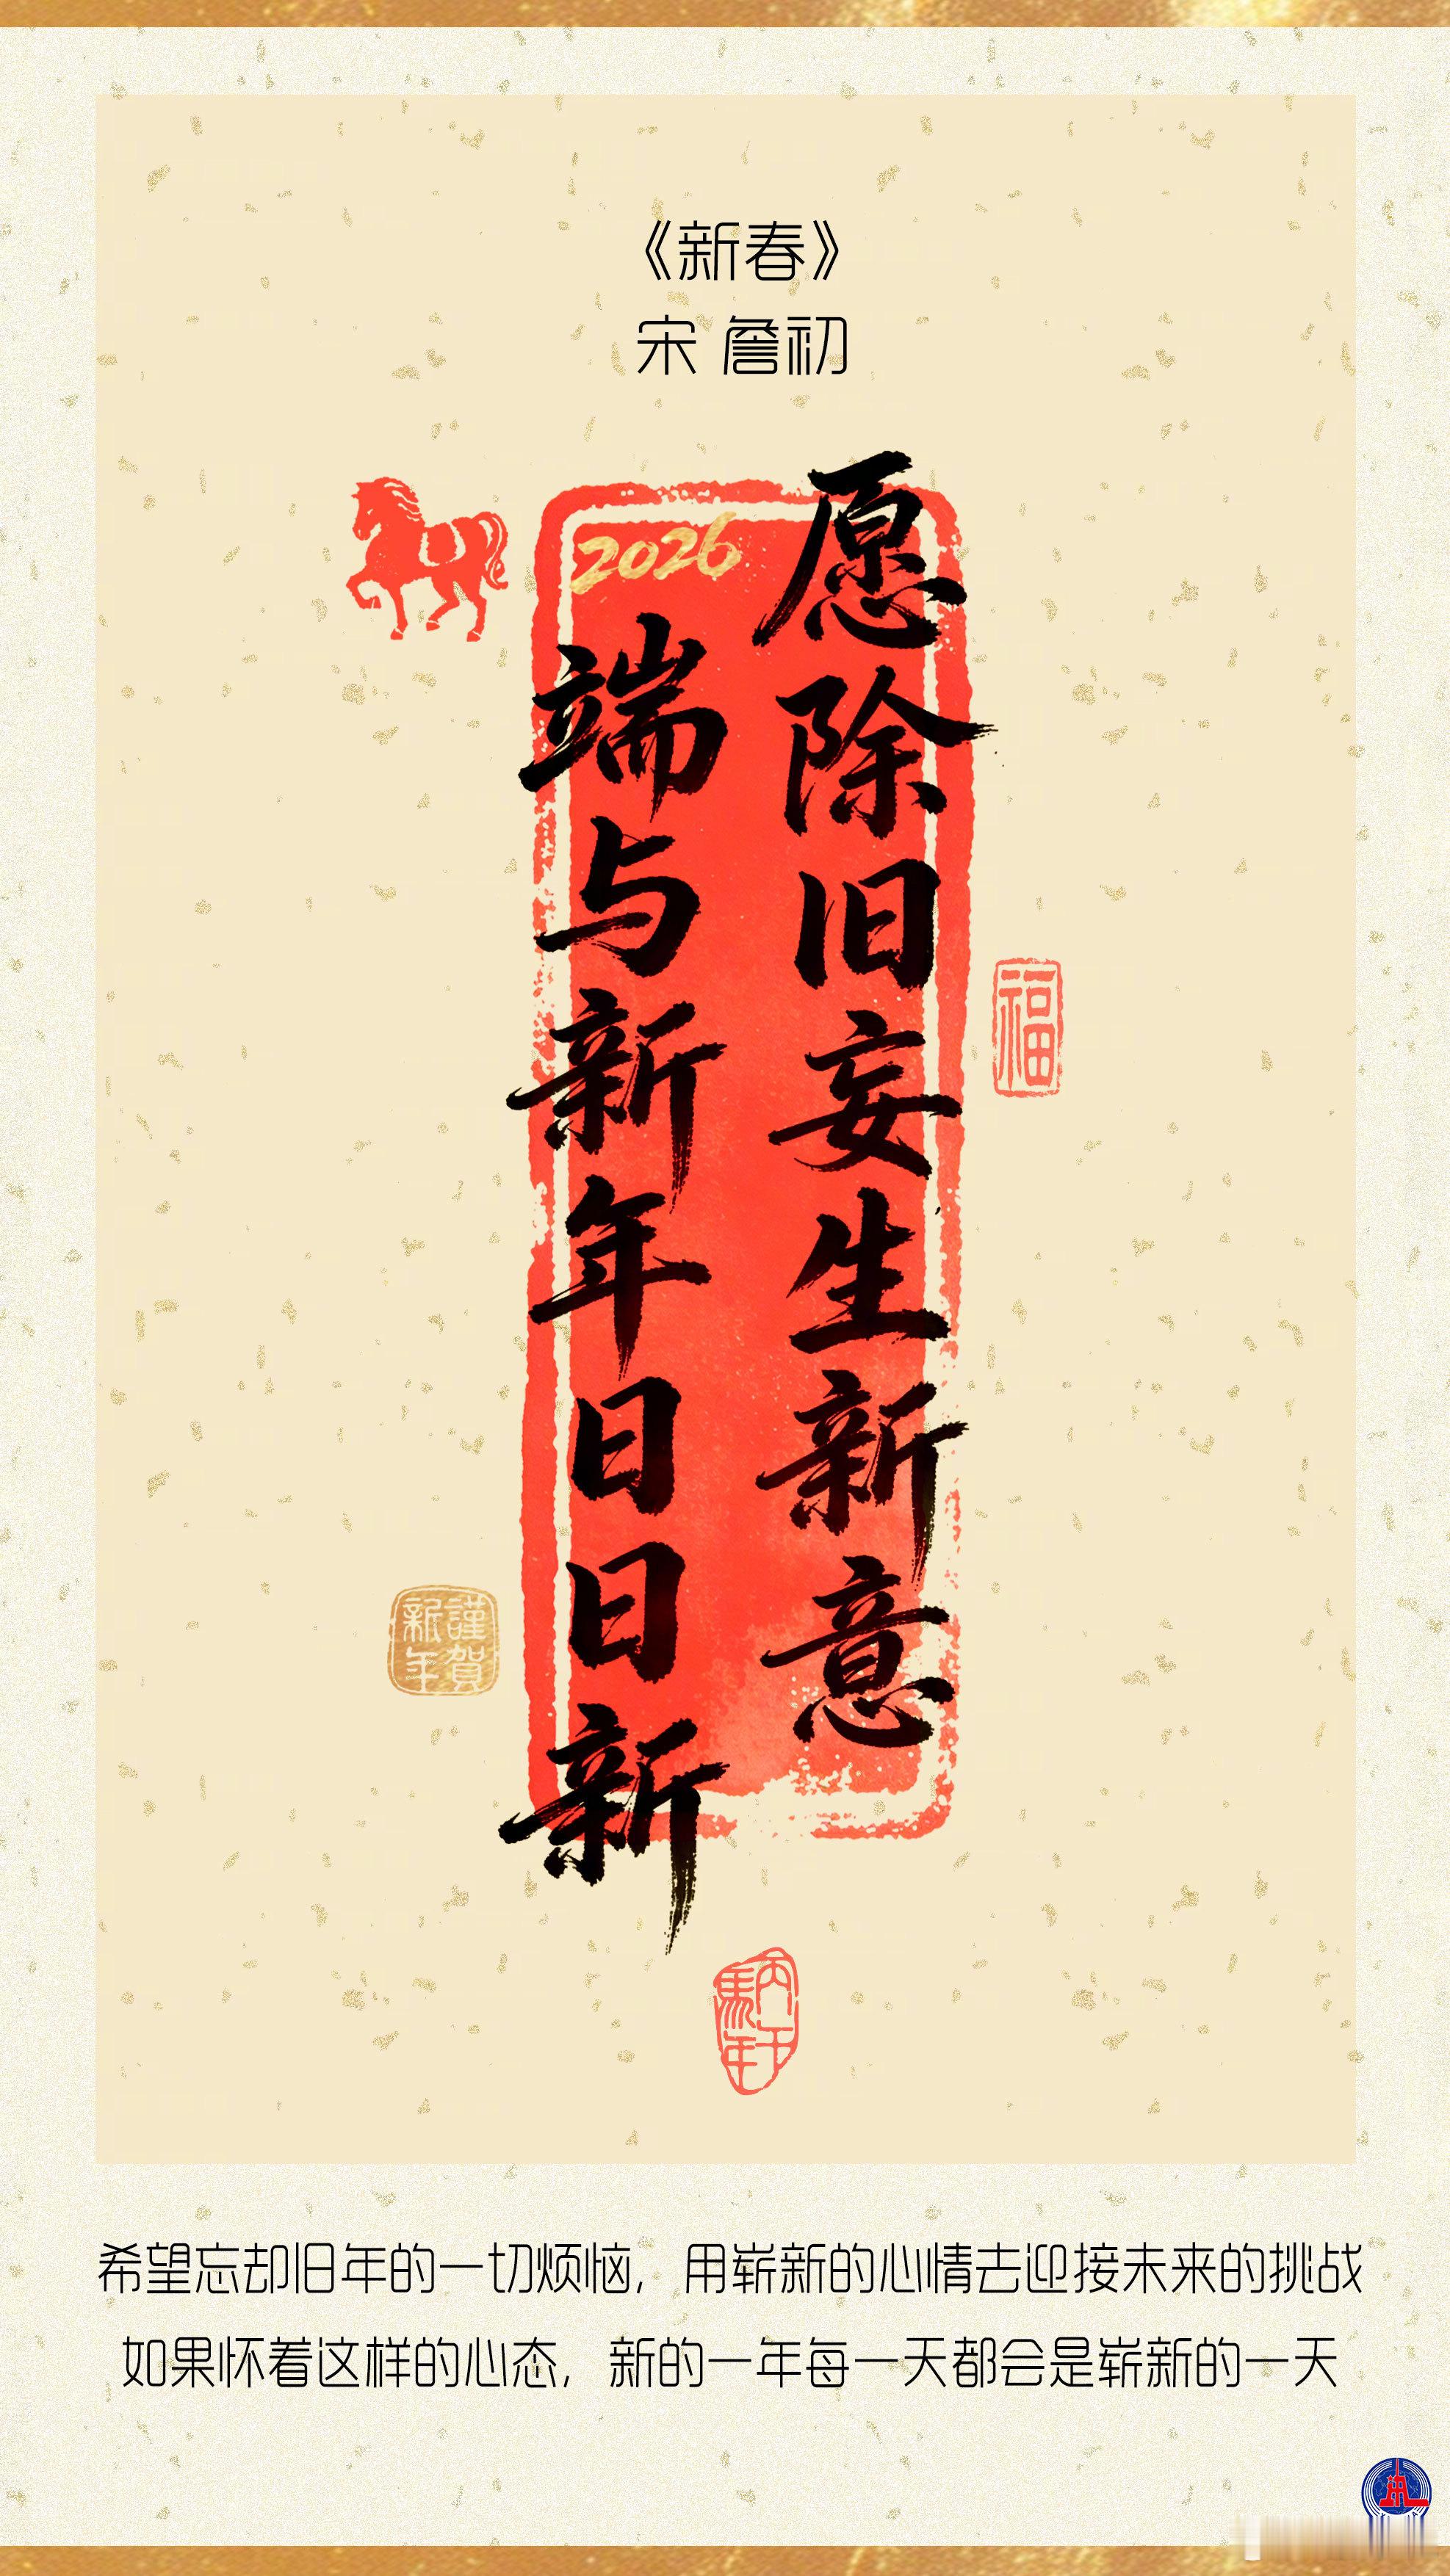 《新春》
宋 詹初
2026
愿除旧妄生新意
端与新年日日新
福
謹賀
新年
丙午
馬年
希望忘却旧年的一切烦恼，用崭新的心情去迎接未来的挑战
如果怀着这样的心态，新的一年每一天都会是崭新的一天